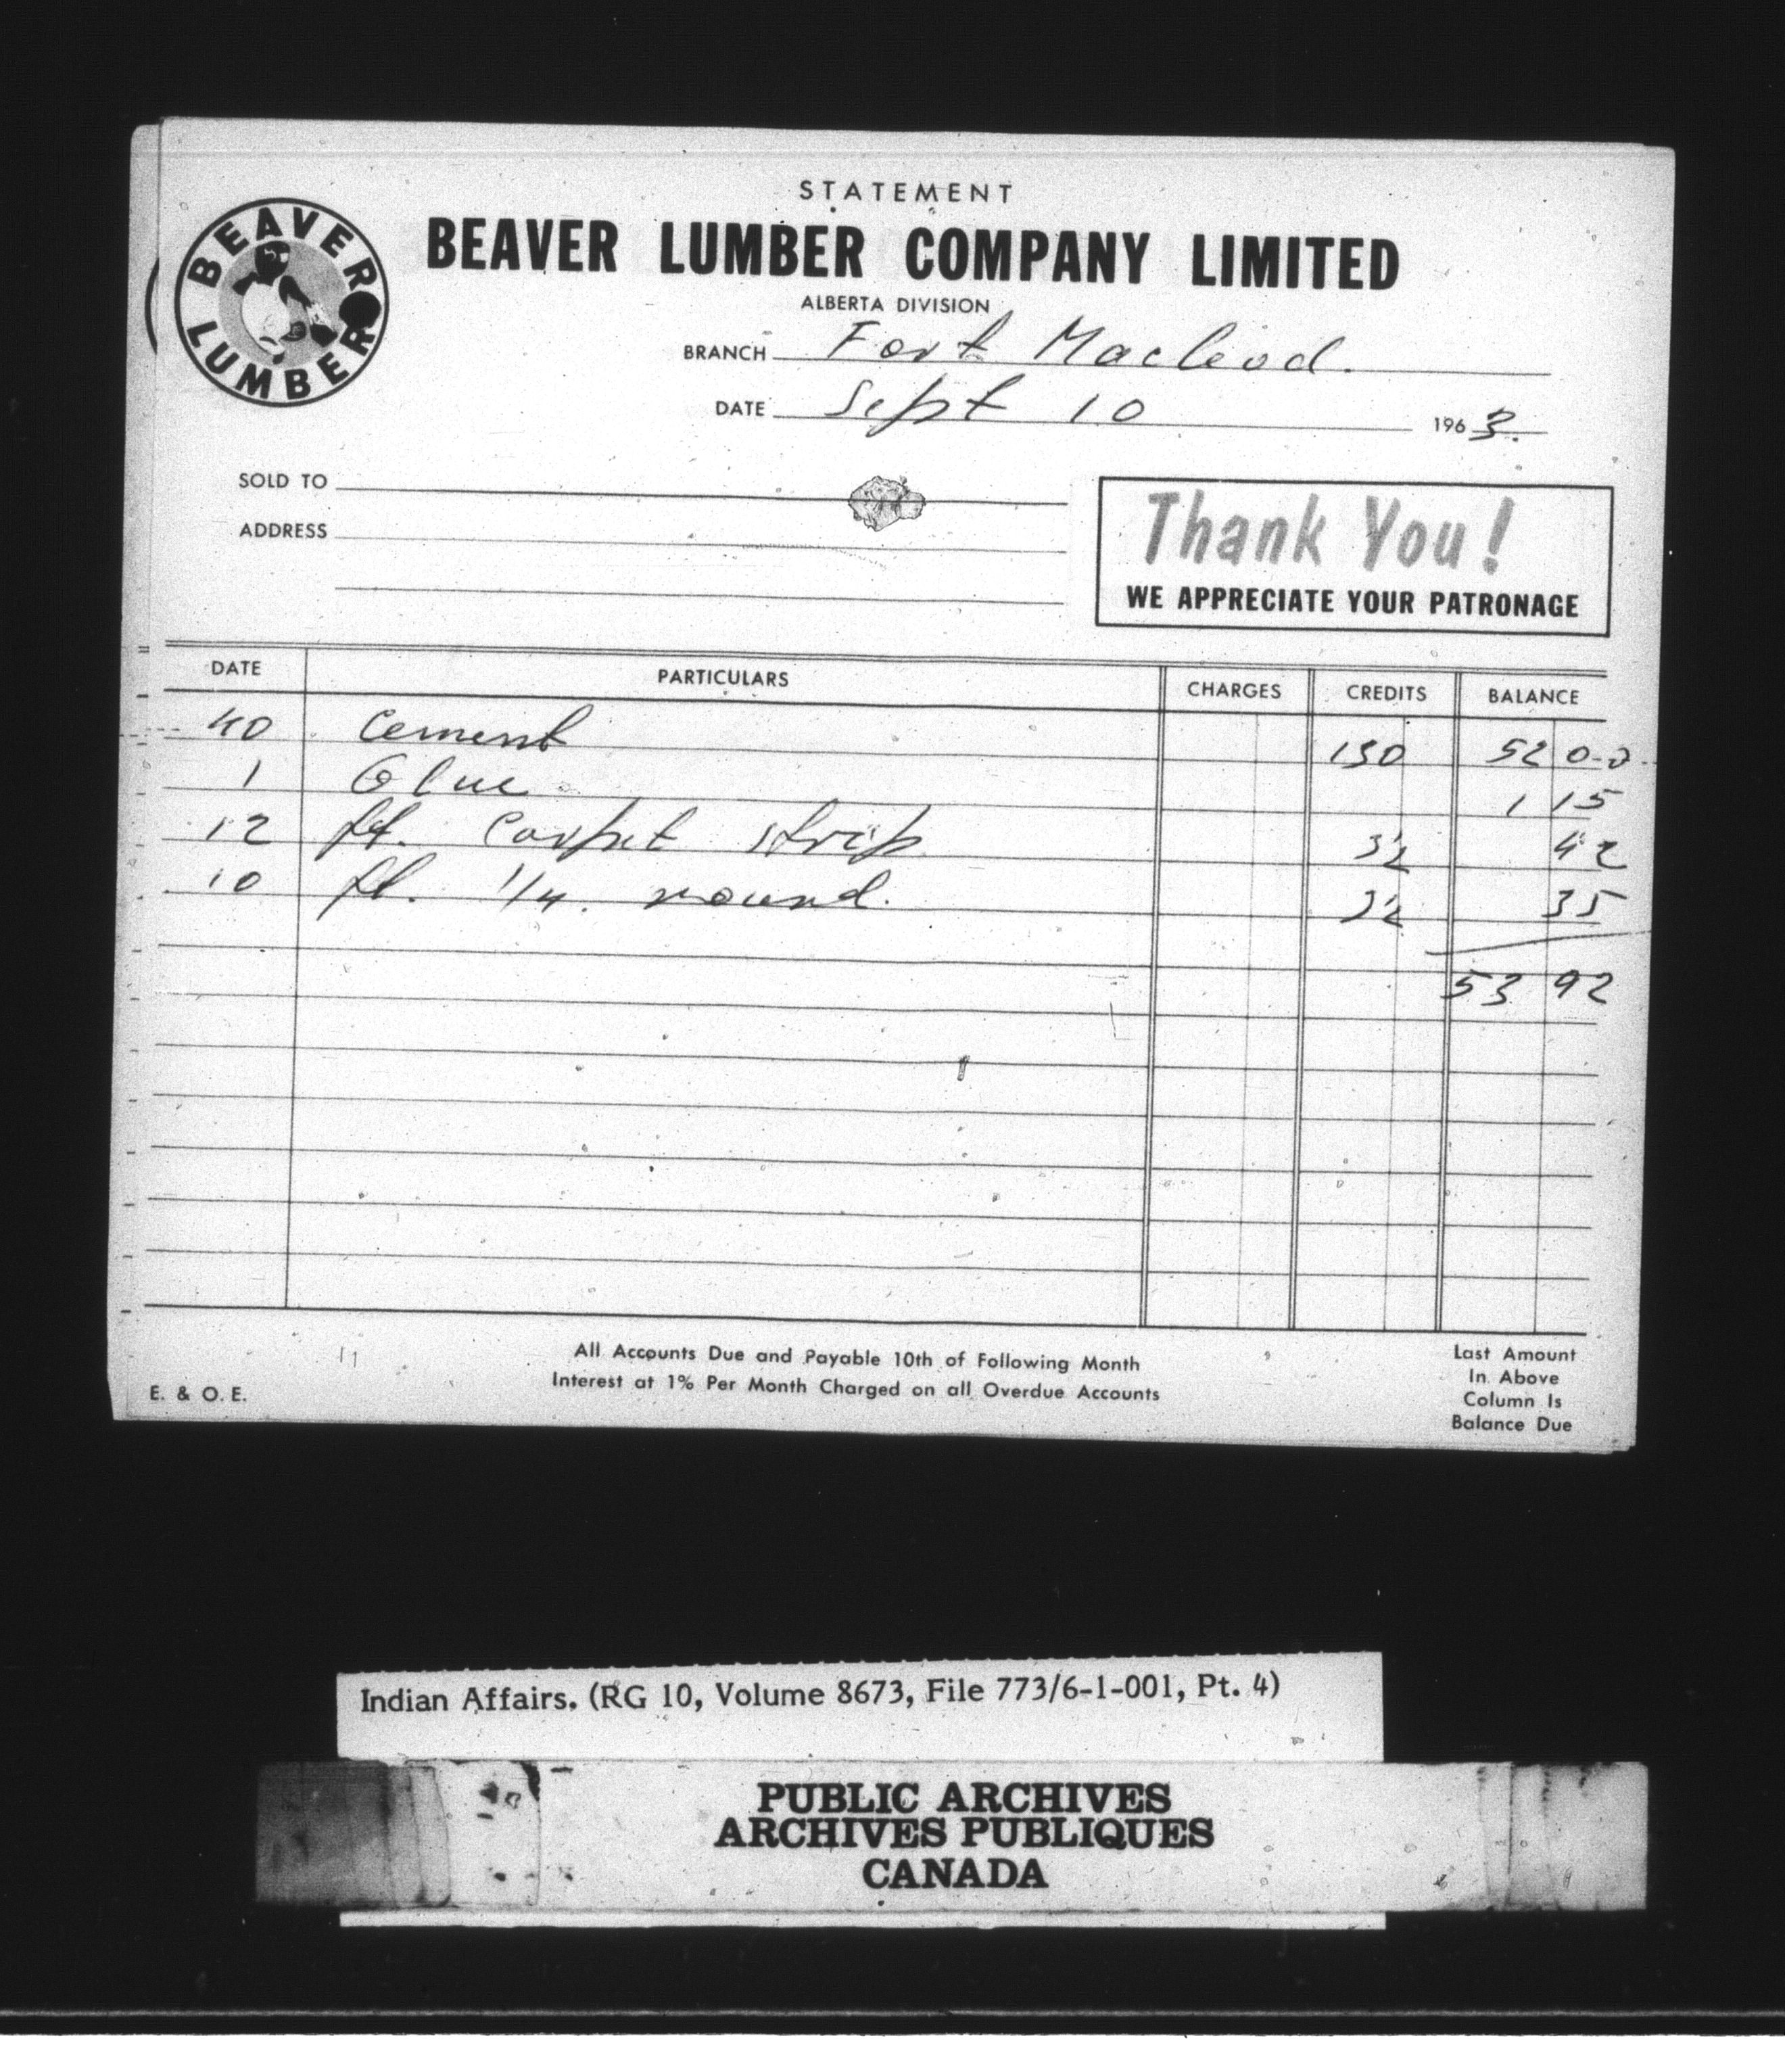 STATEMENT
BEAVER LUMBER
BEAVER LUMBER COMPANY LIMITED
ALBERTA DIVISION
BRANCH Fort Macleod.
DATE Sept 10 1963.
SOLD TO
ADDRESS
Thank You!
WE APPRECIATE YOUR PATRONAGE
DATE PARTICULARS CHARGES CREDITS BALANCE
40 Cement 130 52 00
1 Glue 1 15
12 ft. Carpet strip 3½ 42
10 ft. 1/4 round. 3½ 35
53 92
All Accounts Due and Payable 10th of Following Month
Interest at 1% Per Month Charged on all Overdue Accounts
E. & O. E.
Last Amount
In Above
Column Is
Balance Due
Indian Affairs. (RG 10, Volume 8673, File 773/6-1-001, Pt. 4)
PUBLIC ARCHIVES
ARCHIVES PUBLIQUES
CANADA